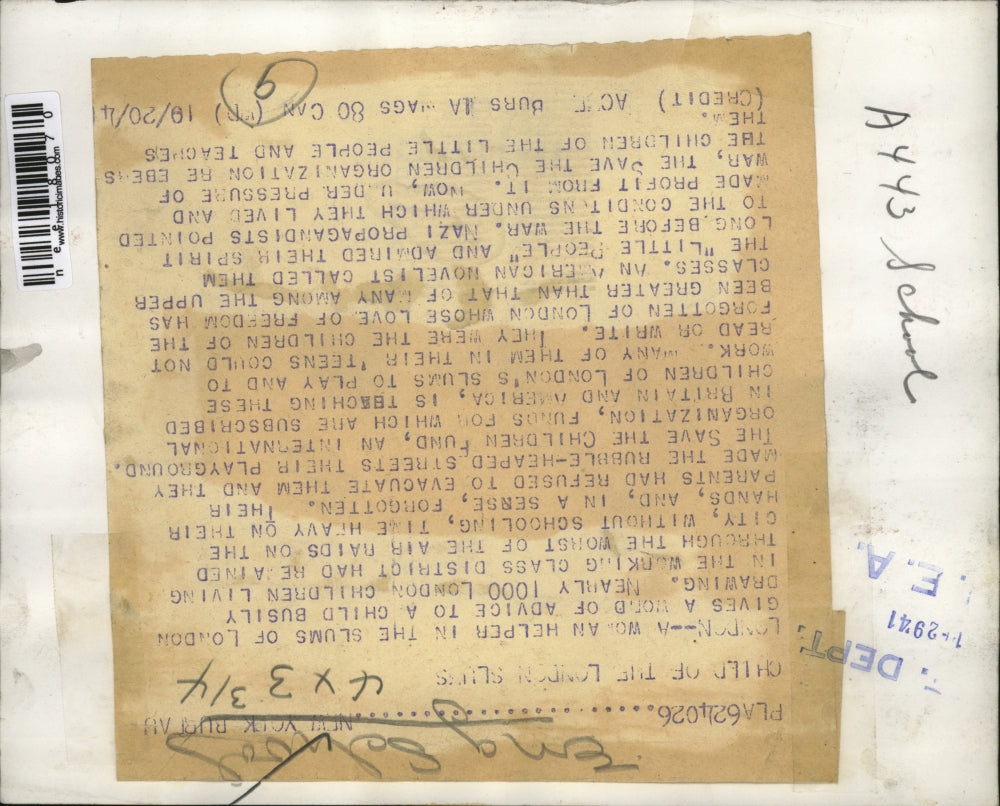 Eng School
PLA624026....................NEW YORK BUREAU
4 x 3 3/4
CHILD OF THE LONDON SLUMS
LONDON--A WOMAN HELPER IN THE SLUMS OF LONDON
GIVES A WORD OF ADVICE TO A CHILD BUSILY
DRAWING. NEARLY 1000 LONDON CHILDREN LIVING
IN THE WORKING CLASS DISTRICT HAD REMAINED
THROUGH THE WORST OF THE AIR RAIDS ON THE
CITY, WITHOUT SCHOOLING, TIME HEAVY ON THEIR
HANDS, AND, IN A SENSE, FORGOTTEN. THEIR
PARENTS HAD REFUSED TO EVACUATE THEM AND THEY
MADE THE RUBBLE-HEAPED STREETS THEIR PLAYGROUND.
THE SAVE THE CHILDREN FUND, AN INTERNATIONAL
ORGANIZATION, FUNDS FOR WHICH ARE SUBSCRIBED
IN BRITAIN AND AMERICA, IS TEACHING THESE
CHILDREN OF LONDON'S SLUMS TO PLAY AND TO
WORK. MANY OF THEM IN THEIR 'TEENS COULD NOT
READ OR WRITE. THEY WERE THE CHILDREN OF THE
FORGOTTEN OF LONDON WHOSE LOVE OF FREEDOM HAS
BEEN GREATER THAN THAT OF MANY AMONG THE UPPER
CLASSES. AN AMERICAN NOVELIST CALLED THEM
THE "LITTLE PEOPLE" AND ADMIRED THEIR SPIRIT
LONG BEFORE THE WAR. NAZI PROPAGANDISTS POINTED
TO THE CONDITIONS UNDER WHICH THEY LIVED AND
MADE PROFIT FROM IT. NOW, UNDER PRESSURE OF
WAR, THE SAVE THE CHILDREN ORGANIZATION RE
THE CHILDREN OF THE LITTLE PEOPLE AND TEACHES
THEM.
(CREDIT) ACME BURS MAGS 80 CAN (WP) 10/20/41
9
A443 School
DEPT.
2941
E. A.
nee11807
www.historicimages.com